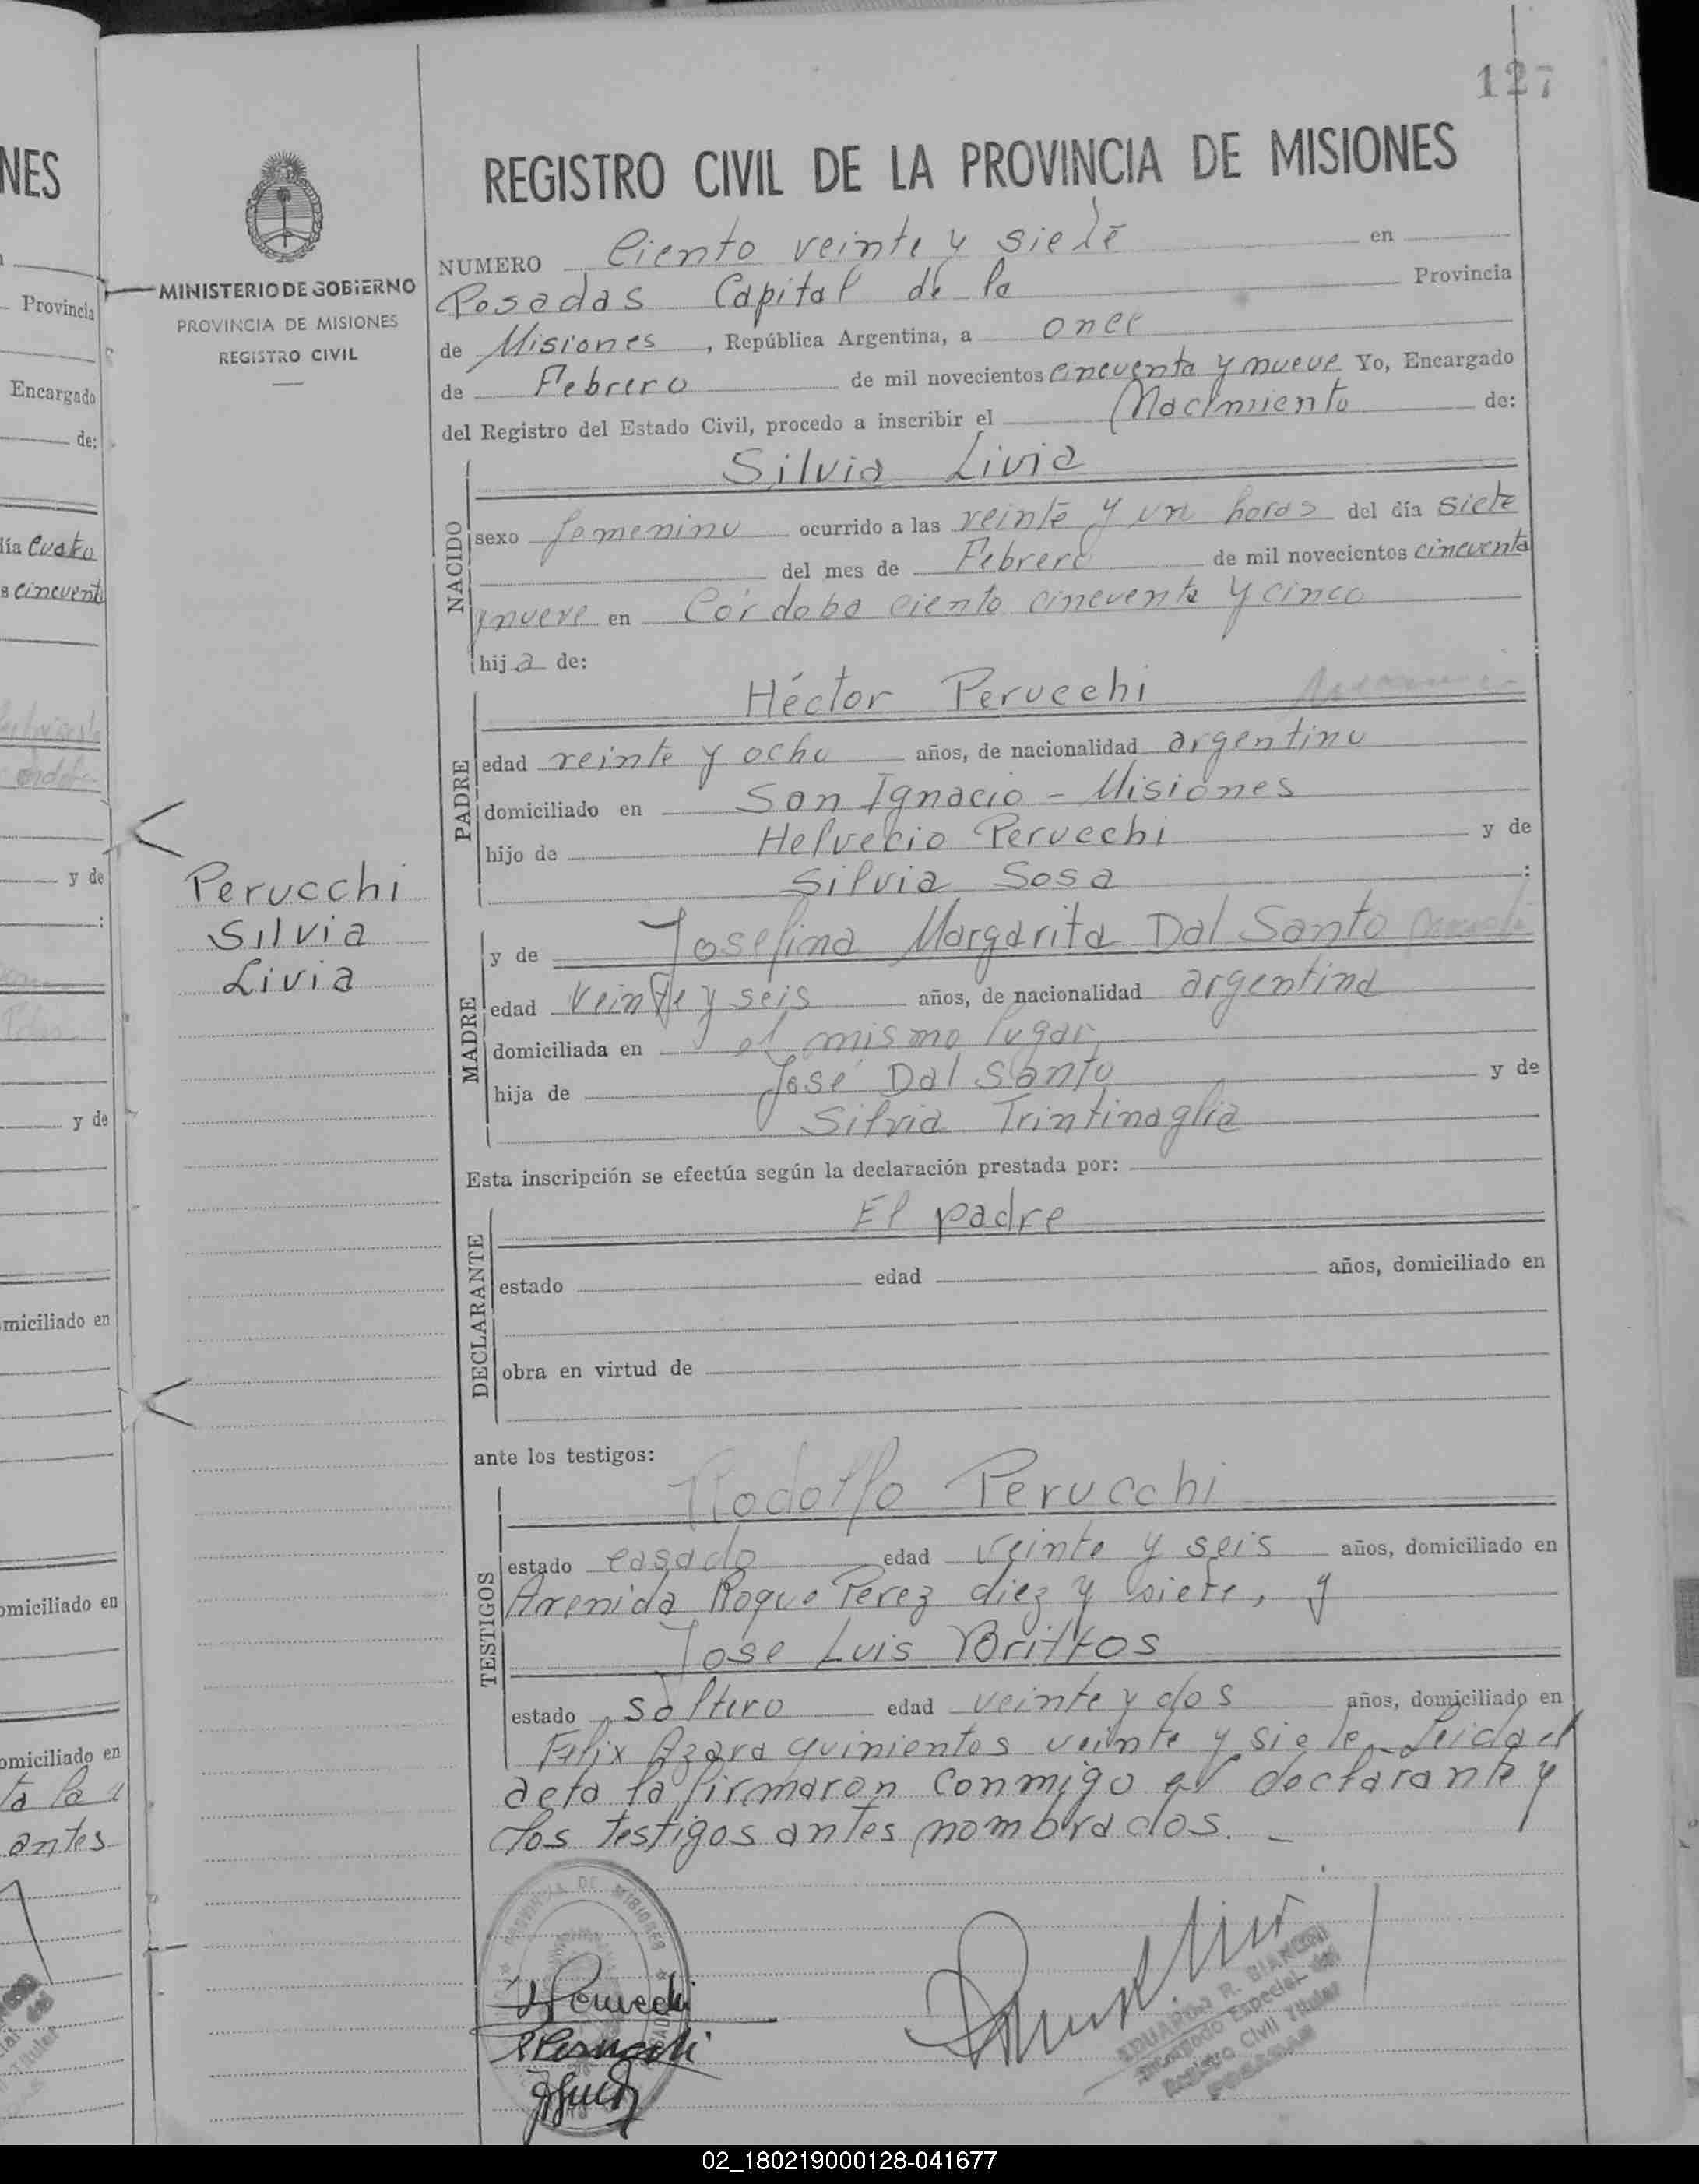 127
NES
REGISTRO CIVIL DE LA PROVINCIA DE MISIONES
MINISTERIO DE GOBIERNO
PROVINCIA DE MISIONES
REGISTRO CIVIL
Provincia
Encargado
de:
día Cuatro
s cincuent
y de
y de
miciliado en
omiciliado en
omiciliado en
antes
Perucchi
Silvia
Livia
NUMERO Ciento veinte y siete en
Posadas Capital de la Provincia
de Misiones, República Argentina, a once
de Febrero de mil novecientos cincuenta y nueve Yo, Encargado
del Registro del Estado Civil, procedo a inscribir el Nacimiento de:
NACIDO
Silvia Livia
sexo femenino ocurrido a las veinte y un horas del día siete
del mes de Febrero de mil novecientos cincuenta
y nueve en Córdoba ciento cincuenta y cinco
hija de:
PADRE
Héctor Perucchi
edad veinte y ocho años, de nacionalidad argentino
domiciliado en San Ignacio - Misiones
hijo de Helvecio Perucchi y de
Silvia Sosa :
MADRE
y de Josefina Margarita Dal Santo
edad veinte y seis años, de nacionalidad argentina
domiciliada en el mismo lugar,
hija de José Dal Santo y de
Silvia Trintinaglia
Esta inscripción se efectúa según la declaración prestada por:
DECLARANTE
El padre
estado edad años, domiciliado en
obra en virtud de
ante los testigos:
TESTIGOS
Rodolfo Perucchi
estado casado edad veinte y seis años, domiciliado en
Avenida Roque Perez diez y siete, y
Jose Luis Brittos
estado soltero edad veinte y dos años, domiciliado en
Felix Azara quinientos veinte y siete. Leida el
acta la firmaron conmigo el declarante y
los testigos antes nombrados. -
PROVINCIA DE MISIONES
H Perucchi
R Perucchi
EDUARDO R. BIANCHI
Encargado Especial del
Registro Civil Titular
POSADAS
02_180219000128-041677